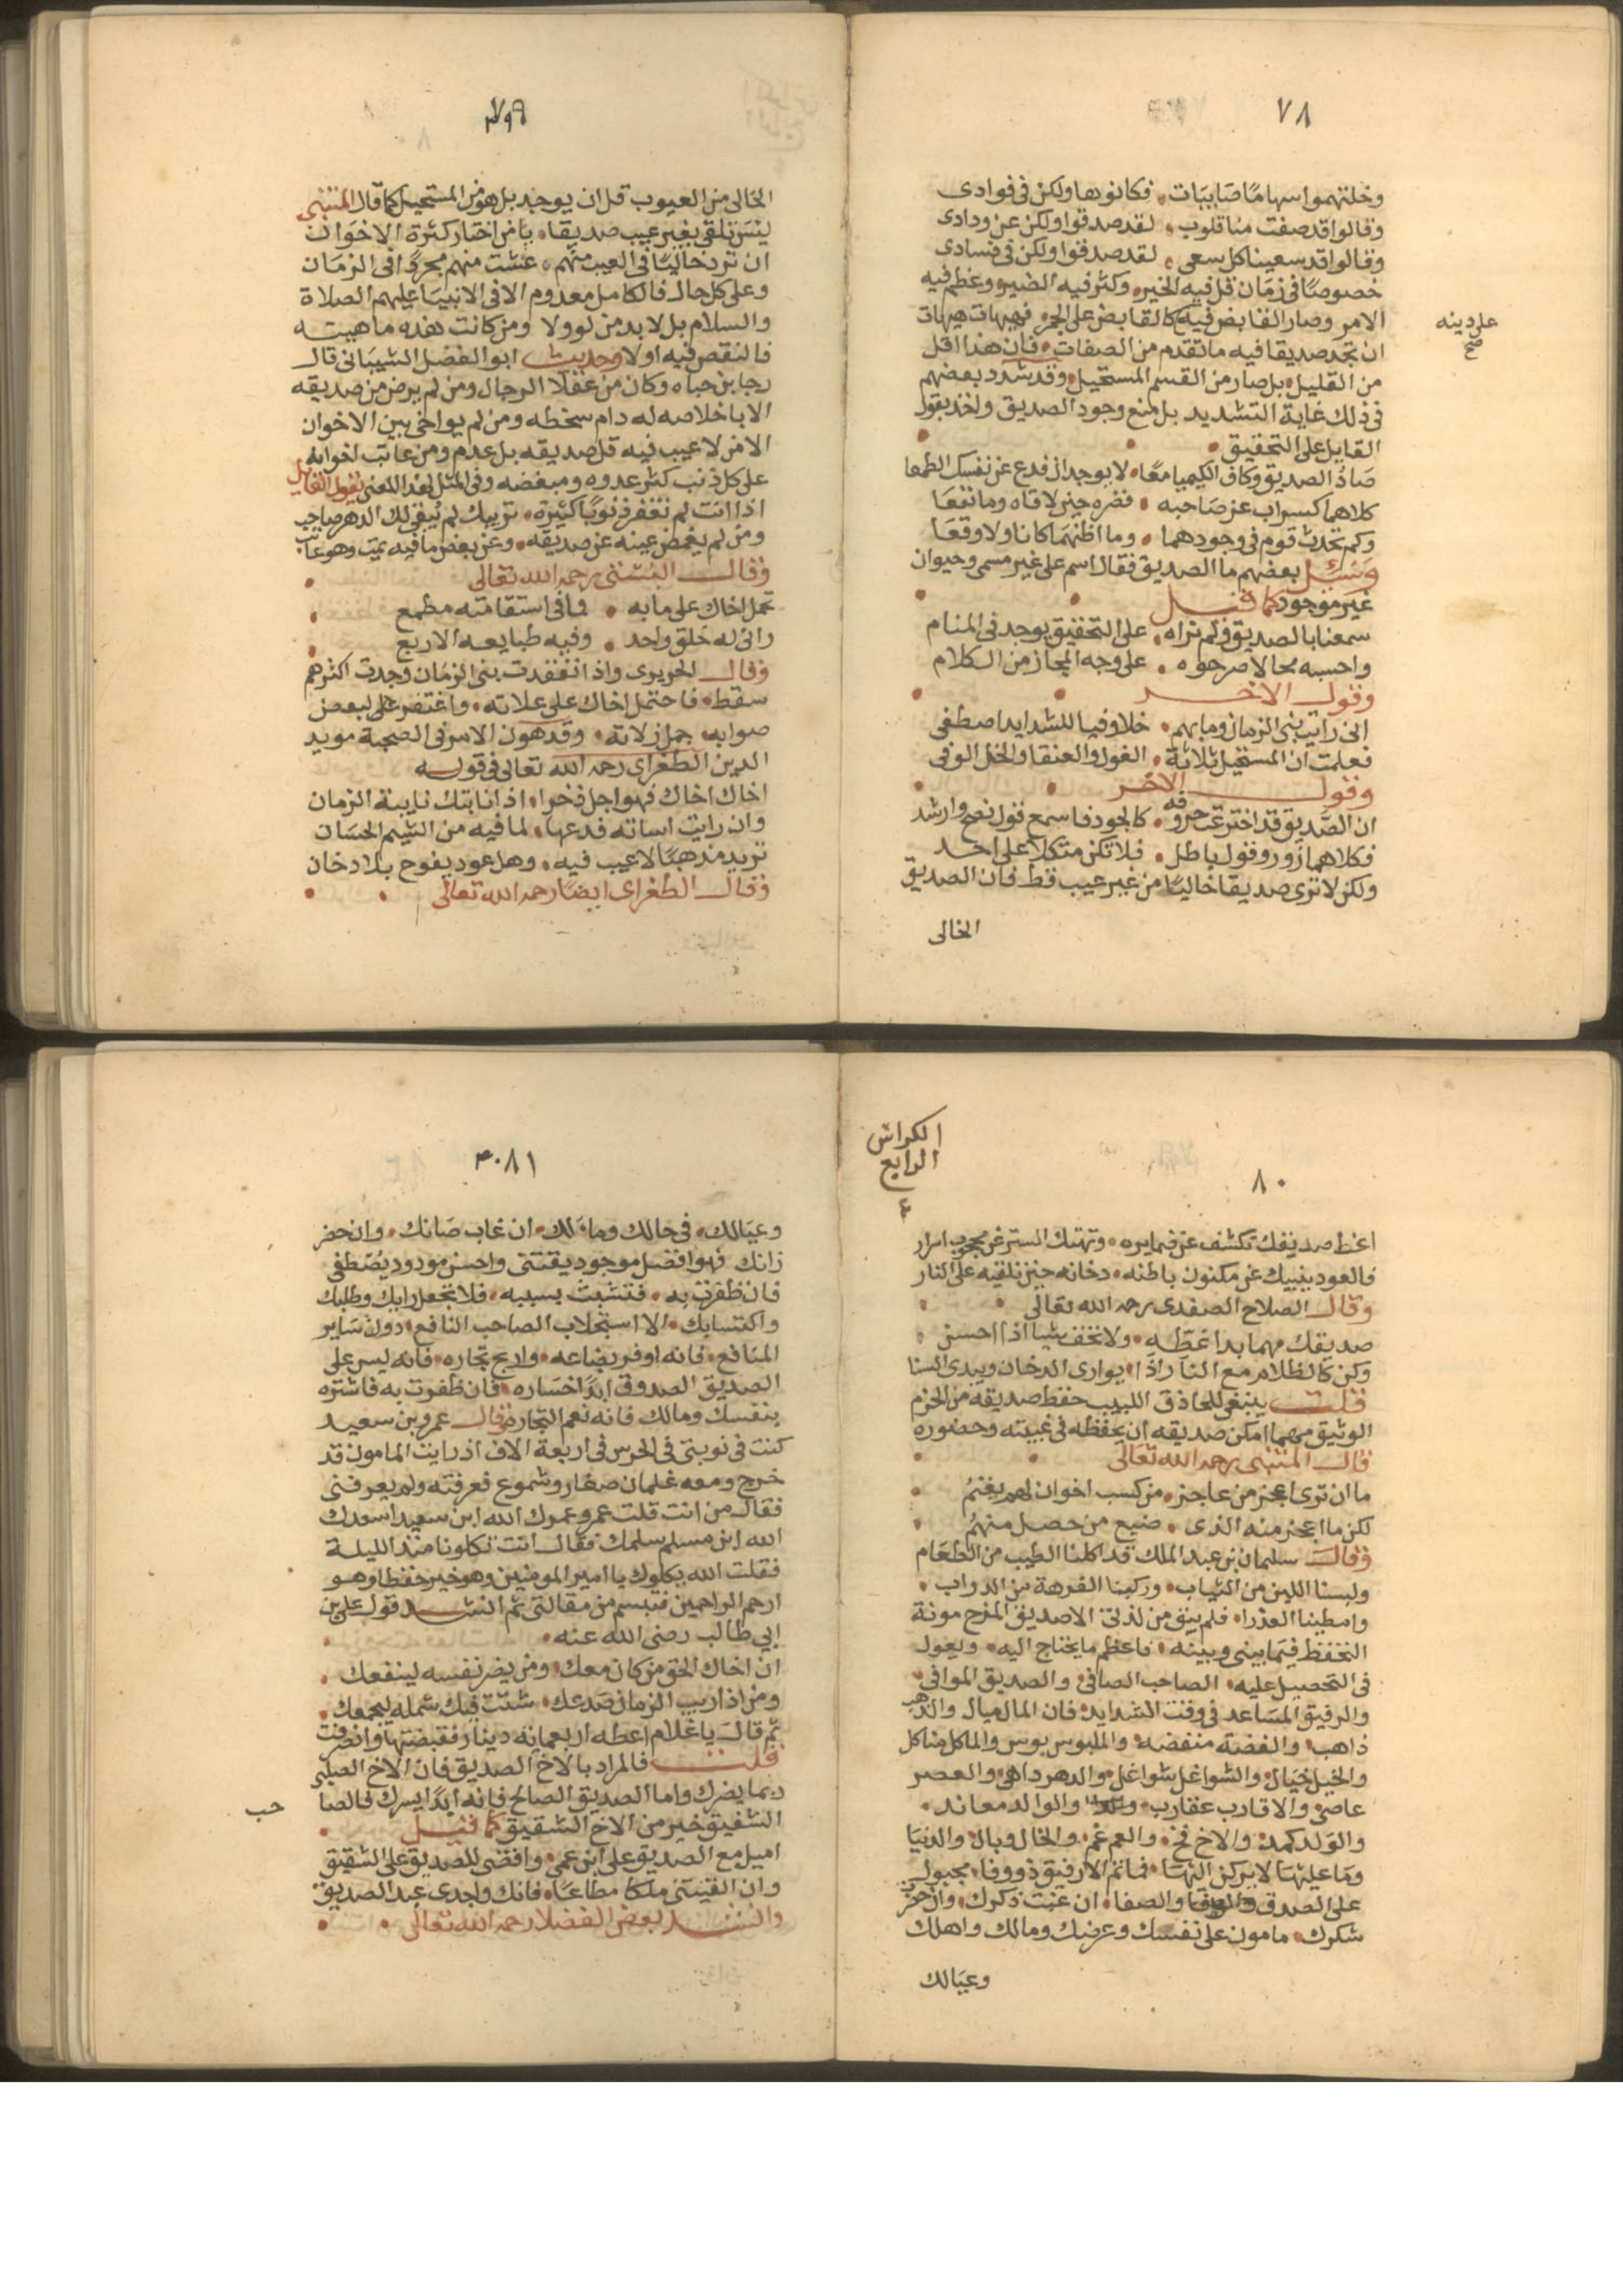 ٧٨
وخلتهموا سهاما صايبات فكانوها ولكن في فوادى
وقالوا قد صفت منا قلوب لقد صدقوا ولكن عن ودادى
وقالوا قد سعينا كل سعى لقد صدقوا ولكن في فسادى
خصوصا في زمان قل فيه الخير وكثر فيه الضير وعظم فيه
الامر وصار القابض فيه كالقابض على الجمر فهيهات هيهات
على دينه
صح
ان تجد صديقا فيه ما تقدم من الصفات فان هذا اقل
من القليل بل صار من القسم المستحيل وقد شدد بعضهم
في ذلك غاية التشديد بل منع وجود الصديق واخذ بقول
القايل على التحقيق
صاد الصديق وكاف الكيميا معا لا يوجدان فدع عن نفسك الطمعا
كلاهما كسراب عن صاحبه فضره حين لاقاه وما نفعا
وكم تحدث قوم في وجودهما وما اظنهما كانا ولا وقعا
وسئل بعضهم ما الصديق فقال اسم على غير مسمى وحيوان
غير موجود كما قيل
سمعنا بالصديق ولم نراه على التحقيق يوجد في المنام
واحسبه محالا صرحوه على وجه المجاز من الكلام
وقول الاخر
انى رايت بنى الزمان وما بهم خلا وفيا للشدايد اصطفى
فعلمت ان المستحيل ثلاثة الغول والعنقا والخل الوفى
وقول الاخر
ان الصديق قد اخترعت حروفه كالجود فاسمع قول نصح وارشد
فكلاهما زور وقول باطل فلا تكن متكلا على احد
ولكن لا ترى صديقا خاليا من غير عيب قط فان الصديق
الخالى
٧٩
الخالى من العيوب قل ان يوجد بل هو من المستحيل كما قال المتنبى
ليس تلقى بغير عيب صديقا يا من اختار كثرة الاخوان
ان ترد خاليا في العيب منهم عشت منهم مجردا في الزمان
وعلى كل حال فالكامل معدوم الا في الانبيا عليهم الصلاة
والسلام بل لا بد من لو ولا ومن كانت هذه ماهيته
فالنقص فيه اولا وحديث ابو الفضل الشيبانى قال
رجا بن حياه وكان من عقلا الرجال ومن لم يرض من صديقه
الا باخلاصه له دام سخطه ومن لم يواخى بين الاخوان
الا من لا عيب فيه قل صديقه بل عدم ومن عاتب اخوانه
على كل ذنب كثر عدوه ومبغضه وفى المثل لهذا المعنى يقول القايل
اذا انت لم تغفر ذنوبا كثيرة تريبك لم يبقى لك الدهر صاحب
ومن لم يغمض عينه عن صديقه وعن بعض ما فيه يمت وهو عاتب
وقال البستى رحمه الله تعالى
تحمل اخاك على ما به فما في استقامته مطمع
وانى له خلق واحد وفيه طبايعه الاربع
وقال الحريرى واذا انتقدت بنى الزمان وجدت اكثرهم
سقط فاحتمل اخاك على علاته واغتفر على لبعض
صوابه جمل زلاته وقد هون الامر في الصحبة مويد
الدين الطغراى رحمه الله تعالى في قوله
اخاك اخاك فهو اجل فخرا اذا نابتك نايبة الزمان
وان رايت اساته فدعها لما فيه من الشيم الحسان
تريد مذهبا لا عيب فيه وهل عود يفوح بلا دخان
وقال الطغراى ايضا رحمه الله تعالى
الكراس
الرابع
٤
٨٠
اغظ صديقك تكشف عن ضمايره وتهتك الستر عن محجوب اسرار
فالعود ينبيك عن مكنون باطنه دخانه حين تلقيه على النار
وقال الصلاح الصفدى رحمه الله تعالى
صديقك مهما بدا غطه ولا تخف شيا اذا احسن
وكن كالظلام مع النار اذا يوارى الدخان ويبدى السنا
قلت ينبغى للحاذق اللبيب حفظ صديقه من الحزم
الوثيق مهما امكن صديقه ان يحفظه في غيبته وحضوره
قال المتنبى رحمه الله تعالى
ما ان ترى اعجز من عاجز من كسب اخوان لهم يغتم
لكن ما اعجز منه الذى ضيع من حصل منهم
وقال سليمان بن عبد الملك قد اكلنا الطيب من الطعام
ولبسنا اللين من الثياب وركبنا الفرهة من الدواب
وامطينا العذرا فلم يبق من لذتى الا صديق اطرح مونة
التحفظ فيما بينى وبينه فاعظم ما يحتاج اليه ويعول
في التحصيل عليه الصاحب الصافى والصديق الموافى
والرفيق المساعد في وقت الشدايد فان المال ميال والذهب
ذاهب والفضة منفضه والملبوس بوس والماكل متاكل
والخيل خيال والشواغل شواغل والدهر داهى والعصر
عاصى والاقارب عقارب والوالد معاند
والولد كمد والاخ فخ والعم غم والخال وبال والدنيا
وما عليها لا يركن اليها فما ثم الا رفيق ذو وفا مجبول
على الصدق والصفا ان غبت ذكرك وان حضر
شكرك مامون على نفسك وعرضك ومالك واهلك
وعيالك
٨١
وعيالك في حالك ومالك ان غاب صانك وان حضر
زانك فهو افضل موجود يقتنى واحسن مودود يصطفى
فان ظفرت به فتشبث بسببه فلا تجعل رايك وطلبك
واكتسابك الا استجلاب الصاحب النافع دون ساير
المنافع فانه اوفر بضاعه واربح تجاره فانه ليس على
الصديق الصدوق ابدا خساره فان ظفرت به فاشتره
بنفسك ومالك فانه نعم التجاره وقال عمرو بن سعيد
كنت في نوبتى في الحرس في اربعة الاف اذ رايت المامون قد
خرج ومعه غلمان صغار وشموع فعرفته ولم يعرفنى
فقال من انت قلت عمرو عمرك الله ابن سعيد اسعدك
الله ابن مسلم سلمك فقال انت تكلونا منذ الليلة
فقلت الله يكلوك يا امير المومنين وهو خير حفظا وهو
ارحم الراحمين فتبسم من مقالتى ثم انشد قول على بن
ابى طالب رضى الله عنه
ان اخاك الحق من كان معك ومن يضر نفسه لينفعك
ومن اذا ريب الزمان صدعك شتت فيك شمله ليجمعك
ثم قال يا غلام اعطه اربعماية دينار فقبضتها وانصرفت
قلت فالمراد بالاخ الصديق فان الاخ الصلبى
ربما يضرك واما الصديق الصالح فانه ابدا يسرك فالصا
حب
الشفيق خير من الاخ الشقيق كما قيل
اميل مع الصديق على ابن عمى واقضى للصديق على الشقيق
وان الفيتنى ملكا مطاعا فانك واجدى عبد الصديق
وانشد بعض الفضلا رحمه الله تعالى